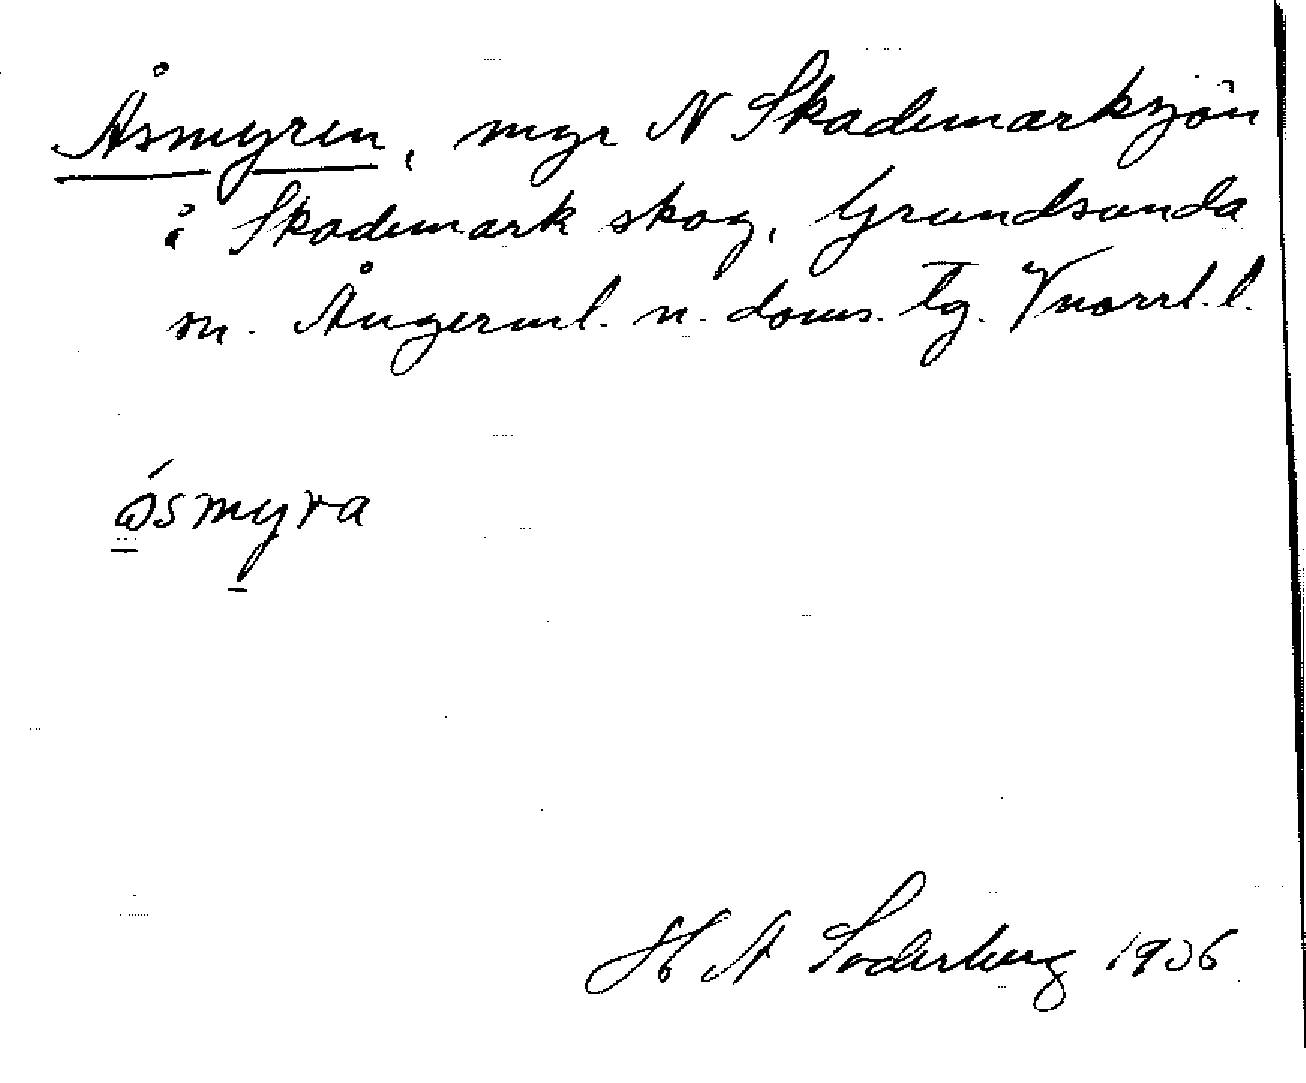 Åsmyren, myr N Skademarksjön
i Skademark skog, Grundsunda
sn. Ångerml. n. doms. tg. Vnorrl. l.
ósmyra
H A Söderberg 1936